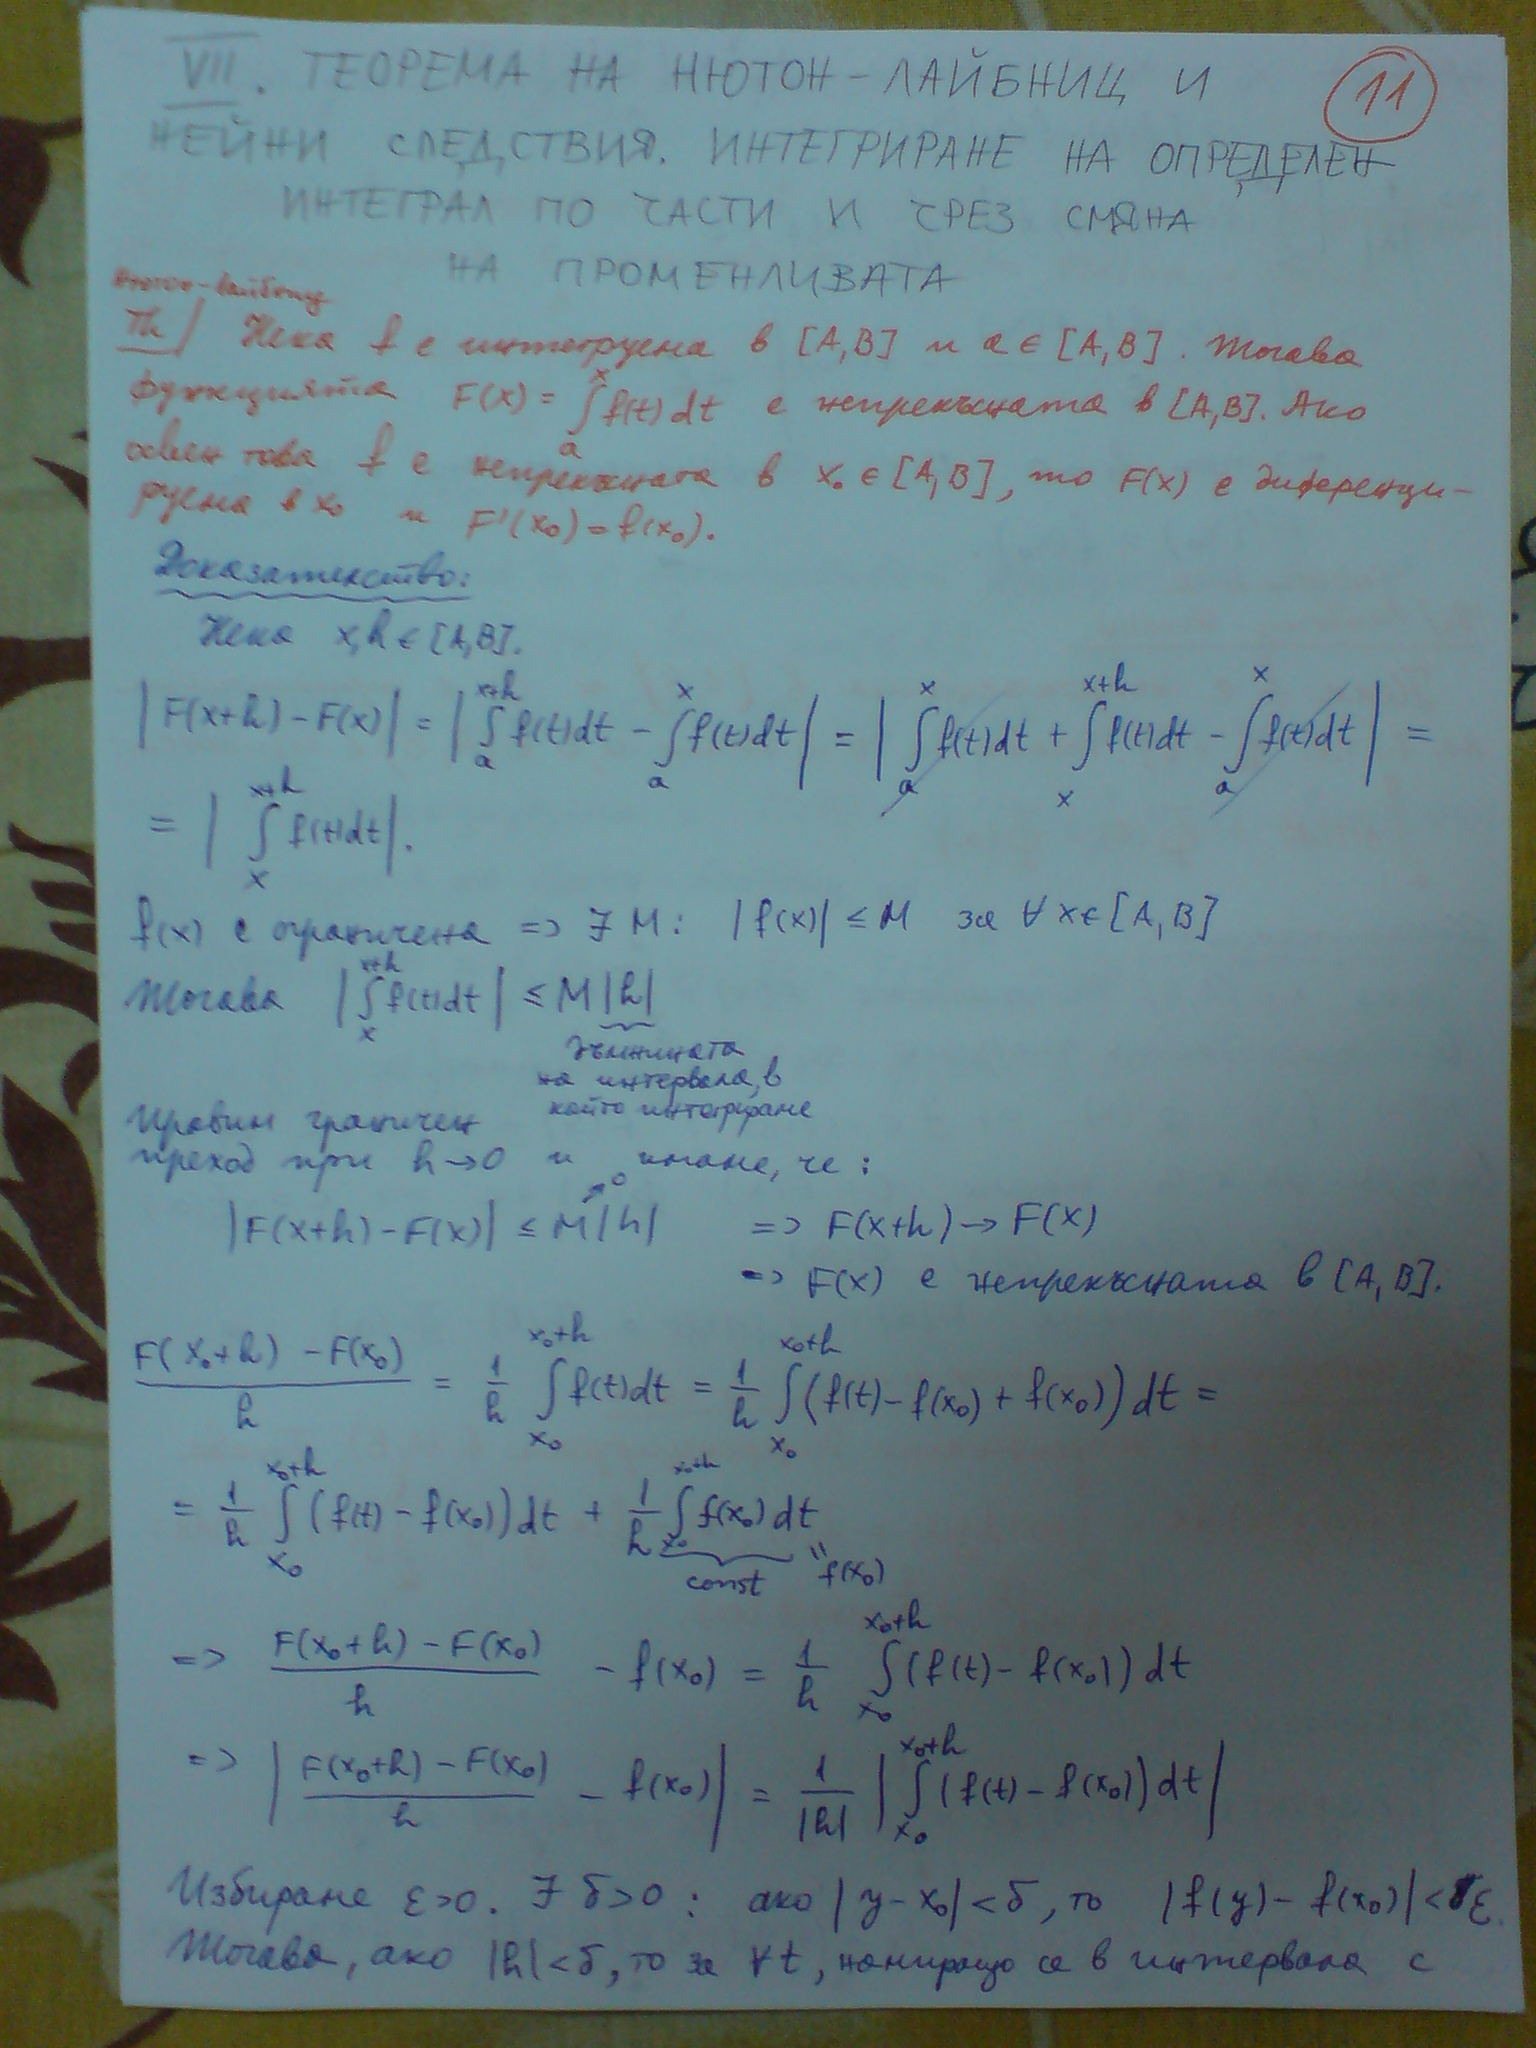 VII. ТЕОРЕМА НА НЮТОН-ЛАЙБНИЦ И
11
НЕЙНИ СЛЕДСТВИЯ. ИНТЕГРИРАНЕ НА ОПРЕДЕЛЕН
ИНТЕГРАЛ ПО ЧАСТИ И ЧРЕЗ СМЯНА
НА ПРОМЕНЛИВАТА
Нютон-Лайбниц
Th/ Нека f е интегруема в [A,B] и a ∈ [A,B]. Тогава
функцията F(x) = ∫_a^x f(t)dt е непрекъсната в [A,B]. Ако
освен това f е непрекъсната в x₀ ∈ [A,B], то F(x) е диференци-
руема в x₀ и F'(x₀) = f(x₀).
Доказателство:
Нека x,h ∈ [A,B].
|F(x+h) - F(x)| = |∫_a^{x+h} f(t)dt - ∫_a^x f(t)dt| = |∫_a^x f(t)dt + ∫_x^{x+h} f(t)dt - ∫_a^x f(t)dt| =
= |∫_x^{x+h} f(t)dt|.
f(x) е ограничена => ∃ M: |f(x)| ≤ M за ∀ x ∈ [A,B]
Тогава |∫_x^{x+h} f(t)dt| ≤ M|h|
дължината
на интервала, в
който интегрираме
Правим граничен
преход при h→0 и имаме, че:
|F(x+h) - F(x)| ≤ M|h| → 0 => F(x+h) → F(x)
=> F(x) е непрекъсната в [A,B].
(F(x₀+h) - F(x₀))/h = 1/h ∫_{x₀}^{x₀+h} f(t)dt = 1/h ∫_{x₀}^{x₀+h} (f(t) - f(x₀) + f(x₀)) dt =
= 1/h ∫_{x₀}^{x₀+h} (f(t) - f(x₀))dt + 1/h ∫_{x₀}^{x₀+h} f(x₀) dt
const " f(x₀)
=> (F(x₀+h) - F(x₀))/h - f(x₀) = 1/h ∫_{x₀}^{x₀+h} (f(t) - f(x₀)) dt
=> |(F(x₀+h) - F(x₀))/h - f(x₀)| = 1/|h| |∫_{x₀}^{x₀+h} (f(t) - f(x₀)) dt|
Избираме ε>0. ∃ δ>0: ако |y-x₀| < δ, то |f(y) - f(x₀)| < ε.
Тогава, ако |h| < δ, то за ∀ t, намиращо се в интервала с